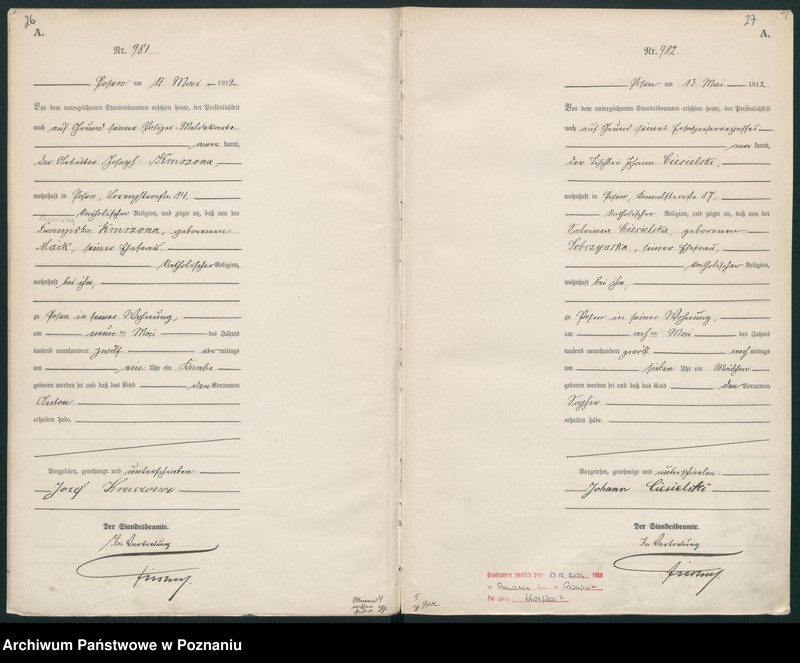 26
A.
Nr. 981
Posen am 11. Mai 1912
Vor dem unterzeichneten Standesbeamten erschien heute, der Persönlichkeit
nach auf Grund seiner Polizei-Meldekarte
aner kannt,
der Arbeiter Joseph Kruszona,
wohnhaft in Posen, 14,
katholischer Religion, und zeigte an, daß von der
Kruszona, geborenen
Maik, seiner Ehefrau
katholischer Religion,
wohnhaft bei ihm,
zu Posen in seiner Wohnung,
am neun ten Mai des Jahres
tausend neunhundert zwölf vor mittags
um ein Uhr ein Knabe
geboren worden sei und daß das Kind den Vornamen
Anton
erhalten habe.
Vorgelesen, genehmigt und unterschrieben
Jozef Kruszona
Der Standesbeamte.
In Vertretung
27
A.
Nr. 982
Posen am 13. Mai 1912
Vor dem unterzeichneten Standesbeamten erschien heute, der Persönlichkeit
nach auf Grund seines Ersatzreservepasses
aner kannt,
der Tischler Johann Ciesielski,
wohnhaft in Posen, 17
katholischer Religion, und zeigte an, daß von der
Salomea Ciesielska, geborenen
Sobczynska, seiner Ehefrau,
katholischer Religion,
wohnhaft bei ihm,
zu Posen in seiner Wohnung,
am ach ten Mai des Jahres
tausend neunhundert zwölf nach mittags
um sieben Uhr ein Mädchen
geboren worden sei und daß das Kind den Vornamen
Sophie
erhalten habe.
Vorgelesen, genehmigt und unterschrieben
Johann Ciesielski
Der Standesbeamte.
In Vertretung
Archiwum Państwowe w Poznaniu